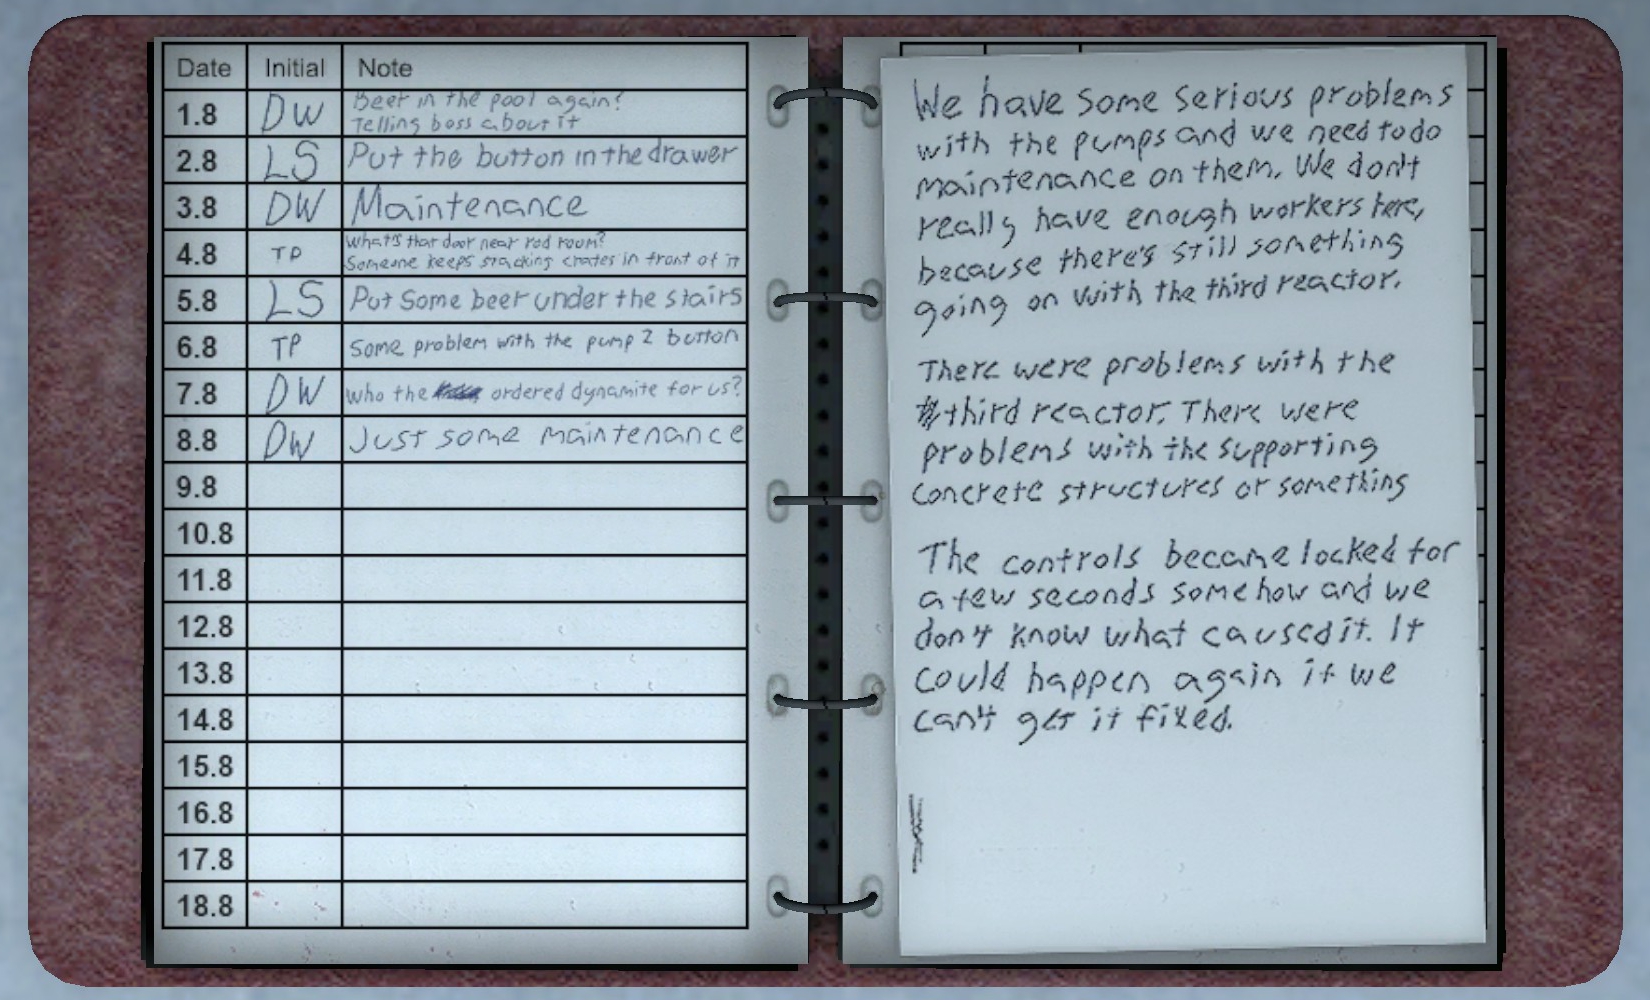 Date Initial Note
1.8 DW Beer in the pool again?
Telling boss about it
2.8 LS Put the button in the drawer
3.8 DW Maintenance
4.8 TP What's that door near rod room?
Someone keeps stacking crates in front of it
5.8 LS Put Some beer under the stairs
6.8 TP Some problem with the pump 2 button
7.8 DW who the ordered dynamite for us?
8.8 DW Just some maintenance
9.8
10.8
11.8
12.8
13.8
14.8
15.8
16.8
17.8
18.8
We have some serious problems
with the pumps and we need to do
maintenance on them. We don't
really have enough workers here,
because there's still something
going on with the third reactor.
There were problems with the
third reactor. There were
problems with the supporting
concrete structures or something
The controls became locked for
a few seconds somehow and we
don't know what caused it. It
could happen again if we
can't get it fixed.